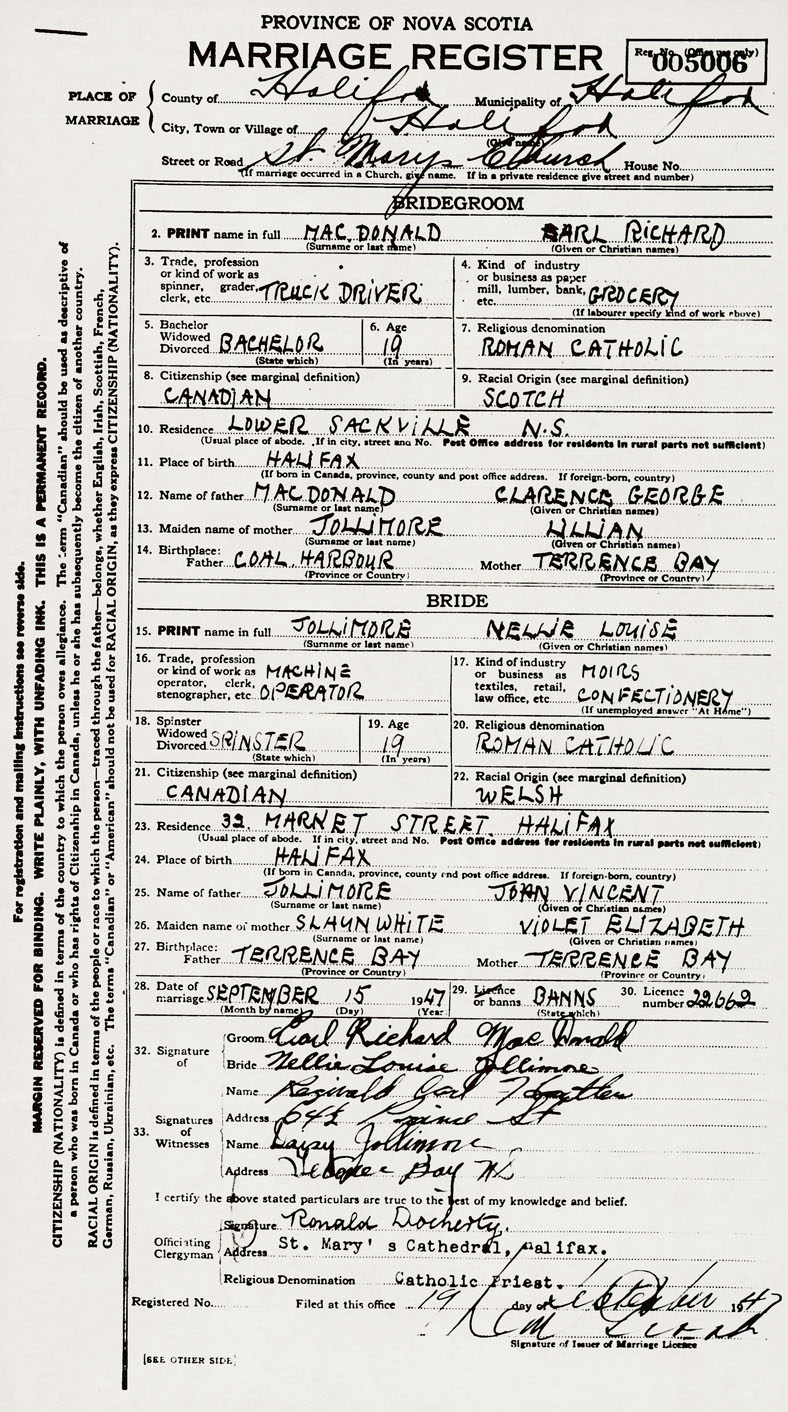 PROVINCE OF NOVA SCOTIA
MARRIAGE REGISTER
Reg. No. (Office use only)
005006
PLACE OF MARRIAGE
County of Halifax Municipality of Halifax
City, Town or Village of Halifax
(Give name)
Street or Road St. Marys Church House No.
(If marriage occurred in a Church, give name. If in a private residence give street and number)
BRIDEGROOM
2. PRINT name in full MAC DONALD EARL RICHARD
(Surname or last name) (Given or Christian names)
3. Trade, profession or kind of work as spinner, grader, clerk, etc. TRUCK DRIVER
4. Kind of industry or business as paper mill, lumber, bank, etc. GROCERY
(If labourer specify kind of work above)
5. Bachelor Widowed Divorced BACHELOR
(State which)
6. Age 19
(In years)
7. Religious denomination
ROMAN CATHOLIC
8. Citizenship (see marginal definition)
CANADIAN
9. Racial Origin (see marginal definition)
SCOTCH
10. Residence LOWER SACKVILLE N.S.
(Usual place of abode. If in city, street and No. Post Office address for residents in rural parts not sufficient)
11. Place of birth HALIFAX
(If born in Canada, province, county and post office address. If foreign-born, country)
12. Name of father MACDONALD CLARENCE GEORGE
(Surname or last name) (Given or Christian names)
13. Maiden name of mother JOLLIMORE LILLIAN
(Surname or last name) (Given or Christian names)
14. Birthplace: Father COAL HARBOUR Mother TERRENCE BAY
(Province or Country) (Province or Country)
BRIDE
15. PRINT name in full JOLLIMORE NELLIE LOUISE
(Surname or last name) (Given or Christian names)
16. Trade, profession or kind of work as operator, clerk, stenographer, etc. MACHINE OPERATOR
17. Kind of industry or business as textiles, retail, law office, etc. MOIRS CONFECTIONERY
(If unemployed answer "At Home")
18. Spinster Widowed Divorced SPINSTER
(State which)
19. Age 19
(In years)
20. Religious denomination
ROMAN CATHOLIC
21. Citizenship (see marginal definition)
CANADIAN
22. Racial Origin (see marginal definition)
WELSH
23. Residence 32 MARKET STREET HALIFAX
(Usual place of abode. If in city, street and No. Post Office address for residents in rural parts not sufficient)
24. Place of birth HALIFAX
(If born in Canada, province, county and post office address. If foreign-born, country)
25. Name of father JOLLIMORE JOHN VINCENT
(Surname or last name) (Given or Christian names)
26. Maiden name of mother SLAUNWHITE VIOLET ELIZABETH
(Surname or last name) (Given or Christian names)
27. Birthplace: Father TERRENCE BAY Mother TERRENCE BAY
(Province or Country) (Province or Country)
28. Date of marriage SEPTEMBER 15 1947
(Month by name) (Day) (Year)
29. Licence or banns BANNS
(State which)
30. Licence number 22662
32. Signature of
Groom Earl Richard MacDonald
Bride Nellie Louise Jollimore
33. Signatures of Witnesses
Name Reginald Earl
Address 64½ Prince St
Name Daisy Jollimore
Address Terence Bay NS
I certify the above stated particulars are true to the best of my knowledge and belief.
Officiating Clergyman
Signature Ronald Docherty.
Address St. Mary's Cathedral, Halifax.
Religious Denomination Catholic Priest.
Registered No. Filed at this office 19 day of September 1947
Signature of Issuer of Marriage Licence
[SEE OTHER SIDE]
For registration and mailing instructions see reverse side.
MARGIN RESERVED FOR BINDING. WRITE PLAINLY, WITH UNFADING INK. THIS IS A PERMANENT RECORD.
CITIZENSHIP (NATIONALITY) is defined in terms of the country to which the person owes allegiance. The term "Canadian" should be used as descriptive of
a person who was born in Canada or who has rights of Citizenship in Canada, unless he or she has subsequently become the citizen of another country.
RACIAL ORIGIN is defined in terms of the people or race to which the person—traced through the father—belongs, whether English, Irish, Scottish, French,
German, Russian, Ukrainian, etc. The terms "Canadian" or "American" should not be used for RACIAL ORIGIN, as they express CITIZENSHIP (NATIONALITY).